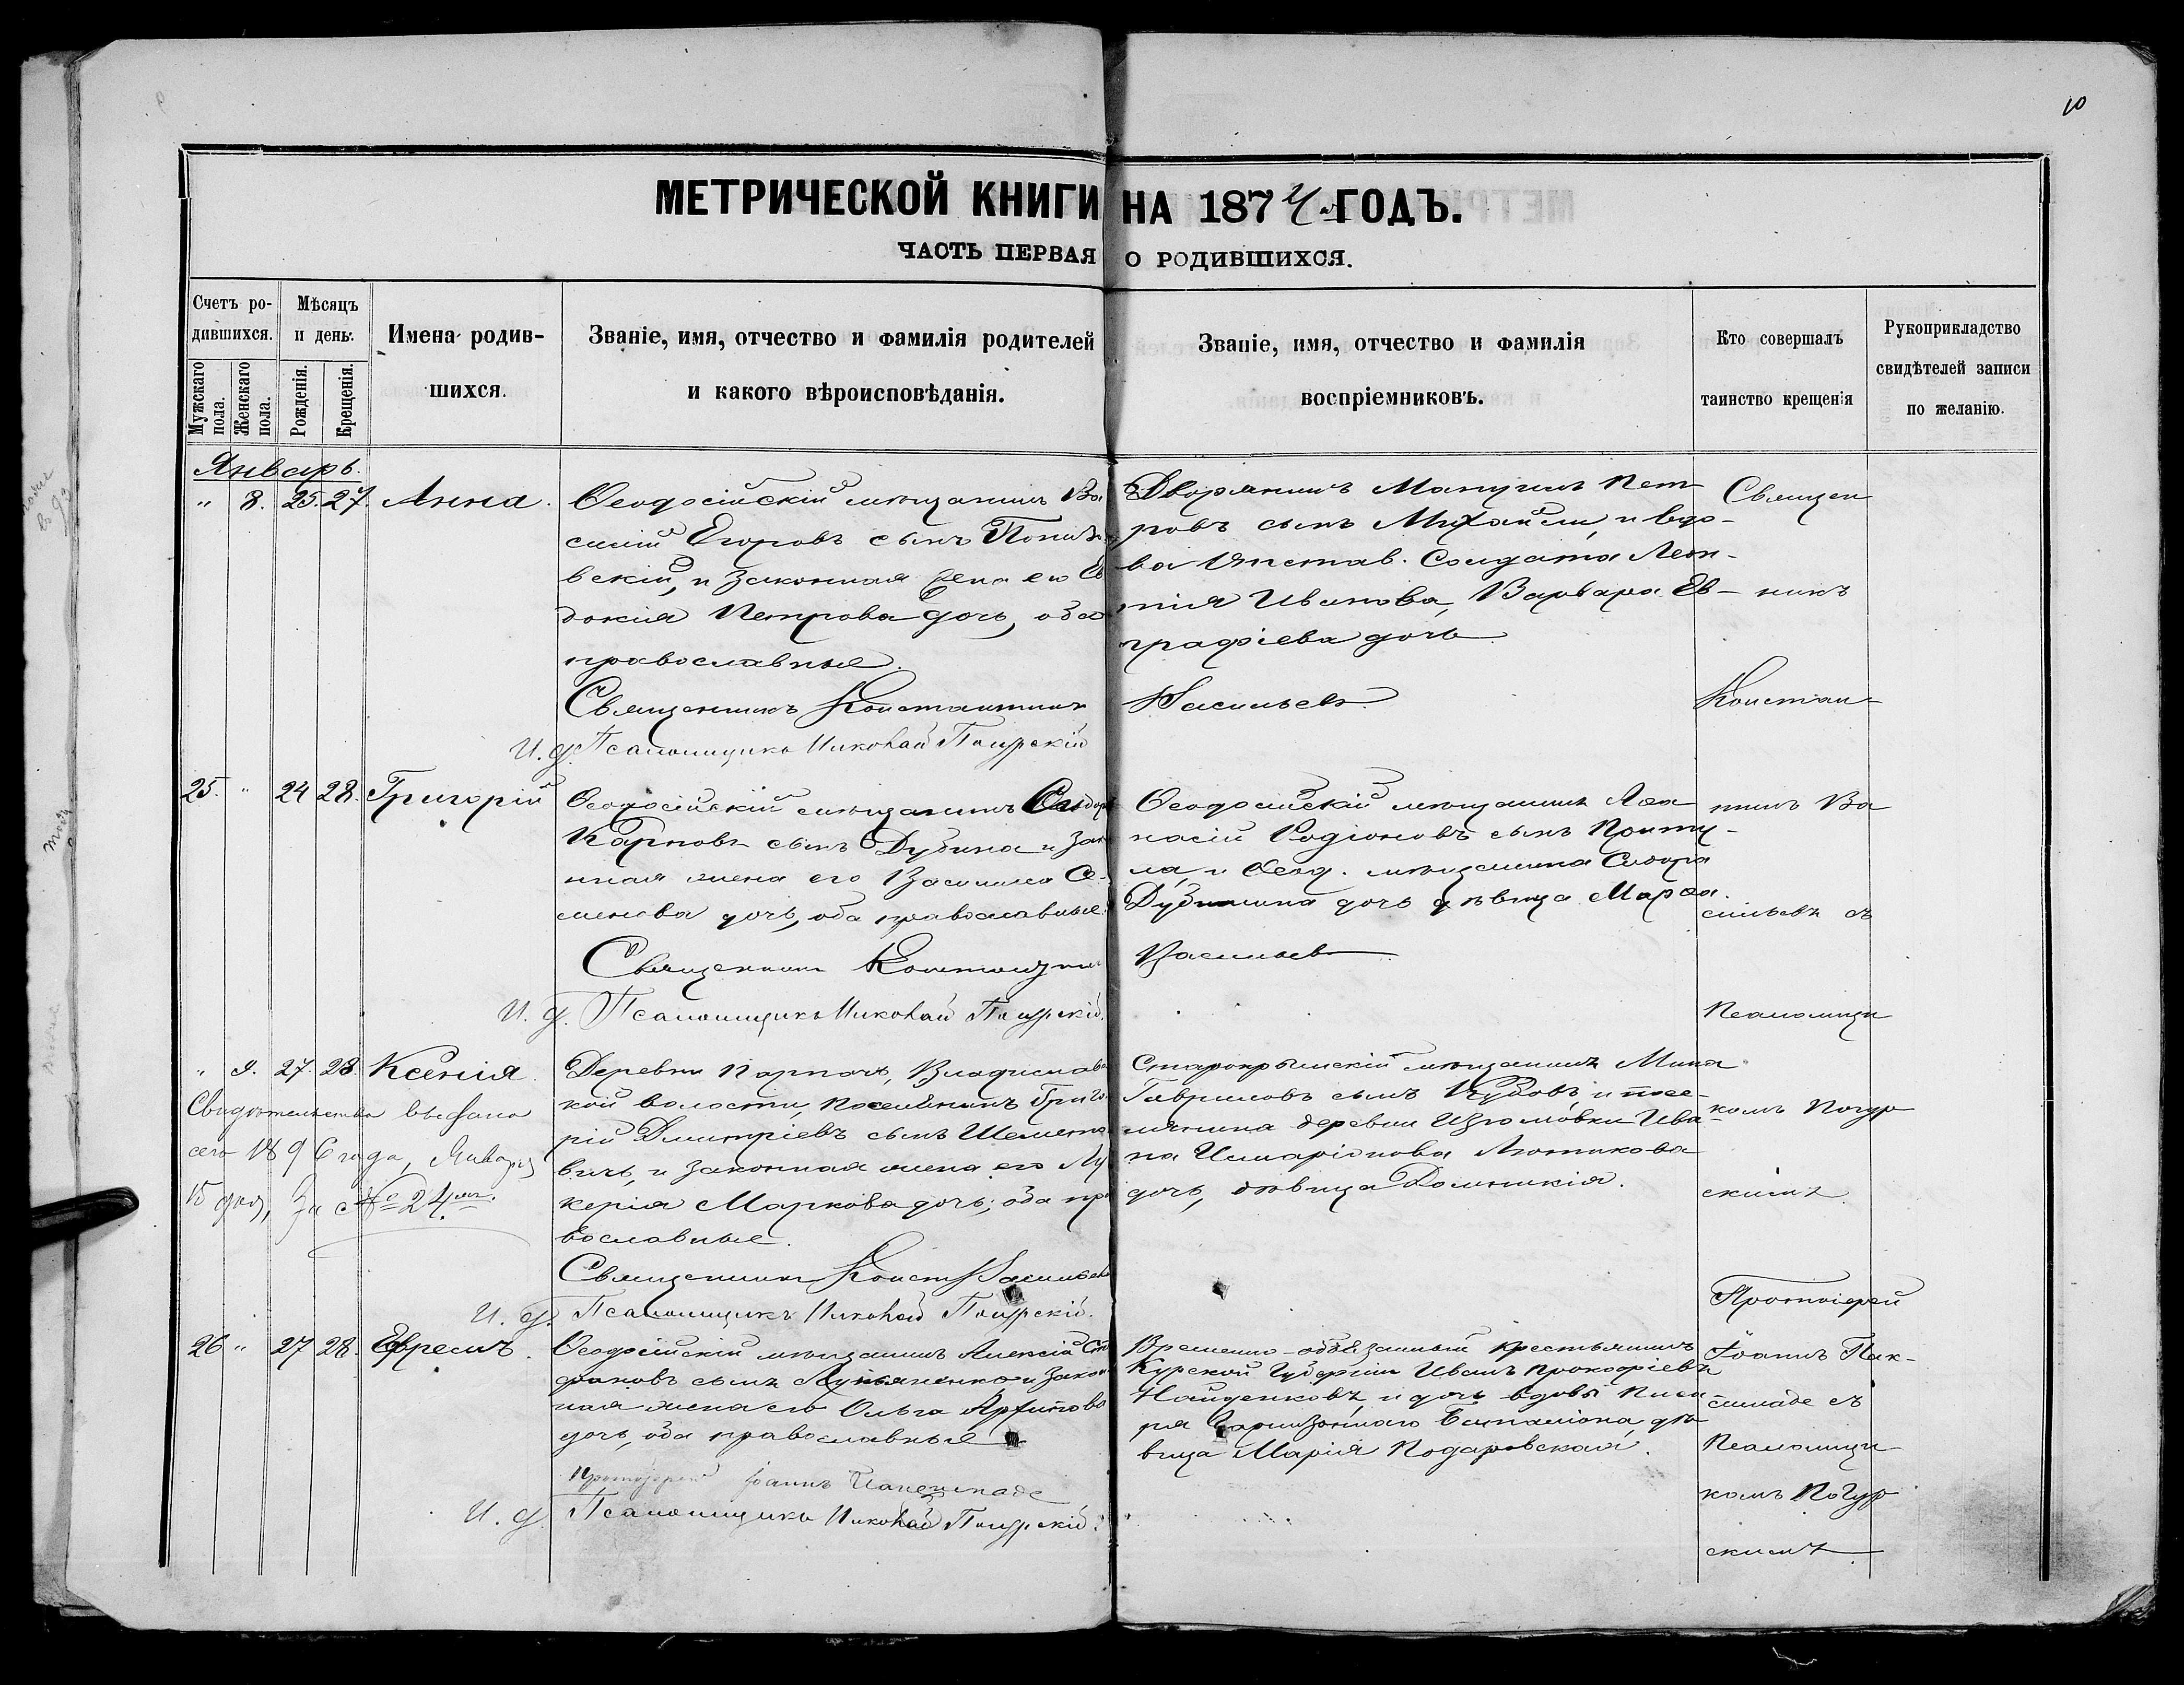 10
МЕТРИЧЕСКОЙ КНИГИ НА 1874 й ГОДЪ.
ЧАСТЬ ПЕРВАЯ О РОДИВШИХСЯ.
Счетъ ро-
дившихся.
Мужскаго пола.
Женскаго пола.
Мѣсяцъ
и день.
Рожденія.
Крещенія.
Имена родив-
шихся.
Званіе, имя, отчество и фамилія родителей
и какого вѣроисповѣданія.
Званіе, имя, отчество и фамилія
воспріемниковъ.
Кто совершалъ
таинство крещенія
Рукоприкладство
свидѣтелей записи
по желанію.
Январь.
" 8. 25. 27. Анна.
Ѳеодосійскій мѣщанинъ Ва
силій Егоровъ сынъ
вскій, и законная жена его Ев
докія Петрова дочь, оба
православные.
Священникъ Константинъ Васильевъ
И. д. Псаломщика Николай Погурскій
Дворянинъ Пет
ровъ сынъ и вдо-
ва отстав. Солдата Леон-
тія Иванова, Варвара Ев-
графіева дочь
Священ
никъ
Констан-
25. " 24 28. Григорій
Ѳеодосійскій мѣщанинъ Сидоръ
Карповъ сынъ Дубина и зак
нная жена его Василиса Се-
менова дочь, оба православные.
Священникъ Константинъ Васильевъ
И. д. Псаломщика Николай Погурскій.
Ѳеодосійскій мѣщанинъ Аѳа
насій Родіоновъ сынъ Приту-
ла, и Ѳеод. мѣщанина Сидора
Дубинина дочь дѣвица Марѳа.
тинъ Ва
сильевъ съ
Псаломщи
" 9. 27. 28. Ксенія
Свидѣтельство выдано
сего 1896 года, Января
15 дня, за № 24 м.
Деревни Парпачъ, Владислав
кой волости, поселянинъ Григо
рій Дмитріевъ сынъ Шемето
вичъ, и законная жена его Лу
керія Маркова дочь; оба пра
вославные.
Священникъ Конст Васильевъ
И. д. Псаломщикъ Николай Погурскій.
Старокрымскій мѣщанинъ Мина
Гавриловъ сынъ и посе-
лянина деревни Изюмовки Ива-
на Иларіонова Лютикова
дочь, дѣвица Домникія.
комъ Погур
скимъ
26 " 27 28. Ефремъ.
Ѳеодосійскій мѣщанинъ Алексій Спи
ридоновъ сынъ Лукьяненко и закон
ная жена его Ольга
дочь, оба православные
Протоіерей Іоаннъ
И. д. Псаломщика Николай Погурскій.
Временно-обязанный крестьянинъ
Курской Губерніи Иванъ Прокофіевъ
Найденковъ, и дочь вдовы Писа
ря Гарнизоннаго Баталіона, дѣ
вица Марія Подаровская.
Протоіерей
Іоаннъ
съ
Псаломщи
комъ Погур
скимъ